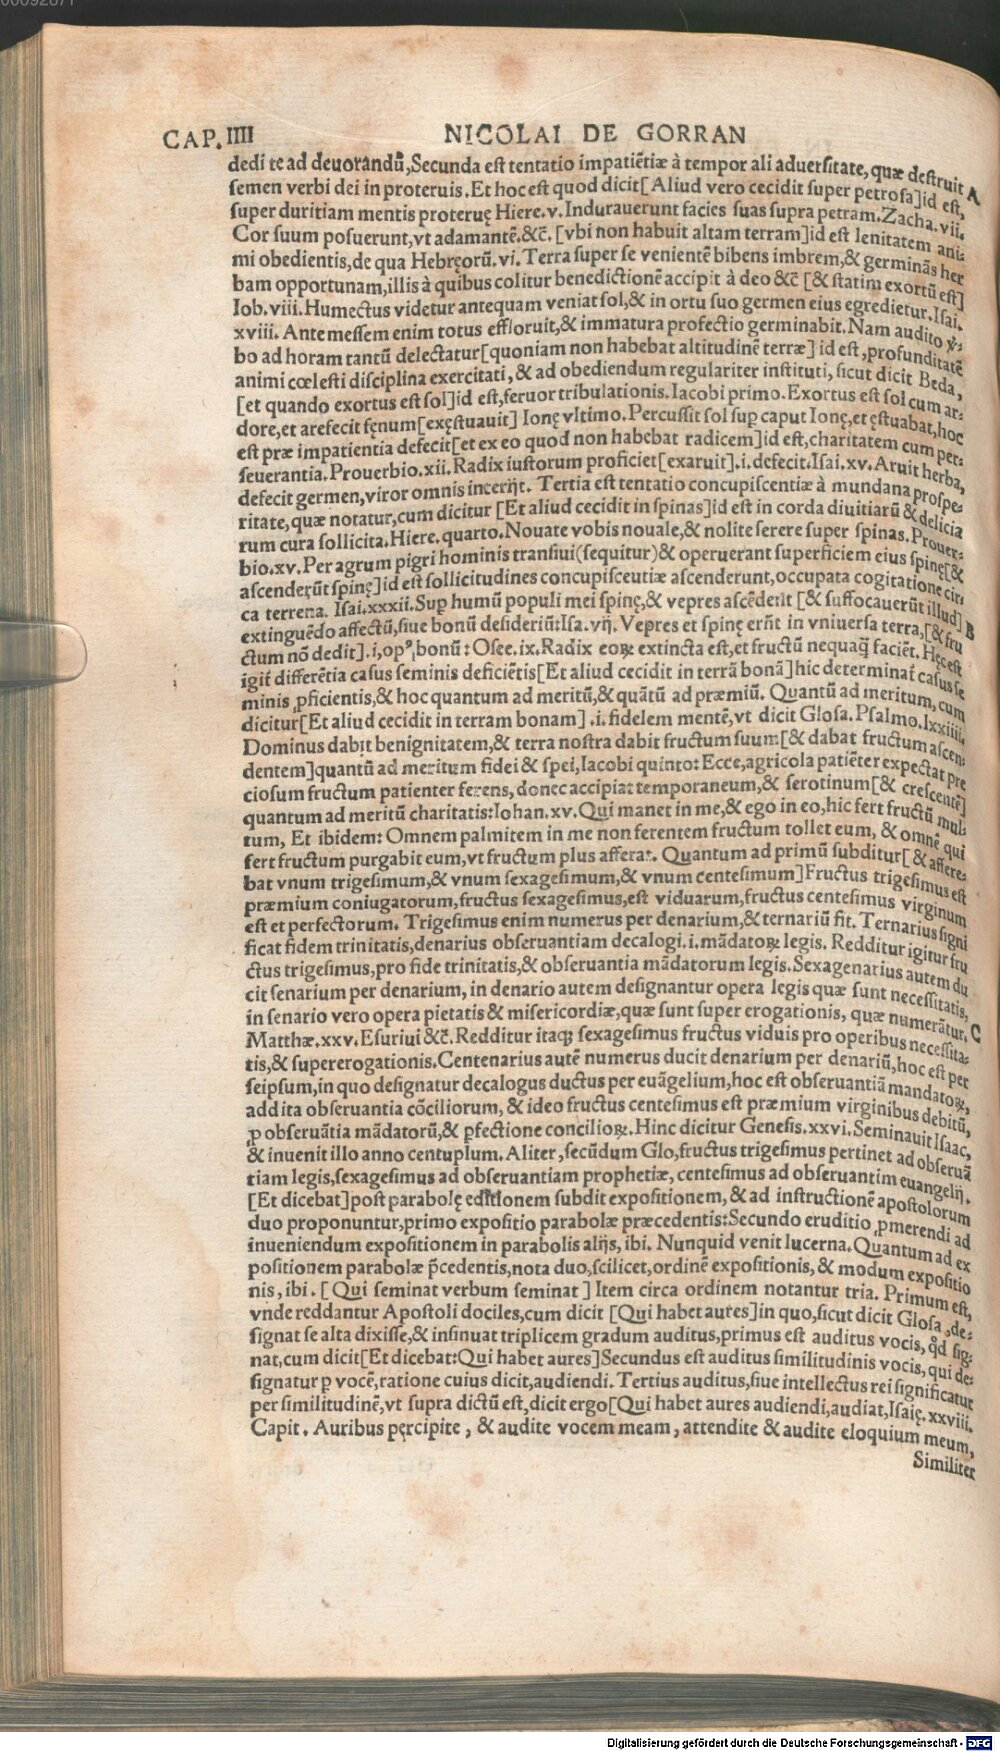 00092871
CAP. IIII NICOLAI DE GORRAN
dedi te ad deuorandũ, Secunda est tentatio impatiẽtiæ à tempor ali aduersitate, quæ destruit A
semen verbi dei in proteruis. Et hoc est quod dicit [Aliud vero cecidit super petrosa] id est,
super duritiam mentis proteruę Hiere. v. Indurauerunt facies suas supra petram. Zacha. vii.
Cor suum posuerunt, vt adamantẽ. &c̃. [vbi non habuit altam terram] id est lenitatem ani-
mi obedientis, de qua Hebręorũ. vi. Terra super se venientẽ bibens imbrem, & germinãs her
bam opportunam, illis à quibus colitur benedictionẽ accipit à deo &c̃ [& statim exortũ est]
Iob. viii. Humectus videtur antequam veniat sol, & in ortu suo germen eius egredietur. Isai.
xviii. Ante messem enim totus effloruit, & immatura profectio germinabit. Nam audito v̈-
bo ad horam tantũ delectatur [quoniam non habebat altitudinẽ terræ] id est, profunditatẽ
animi cœlesti disciplina exercitati, & ad obediendum regulariter instituti, sicut dicit Beda,
[et quando exortus est sol] id est, feruor tribulationis. Iacobi primo. Exortus est sol cum ar-
dore, et arefecit fęnum [exęstuauit] Ionę vltimo. Percussit sol sup caput Ionę, et ęstuabat, hoc
est præ impatientia defecit [et ex eo quod non habebat radicem] id est, charitatem cum per-
seuerantia. Prouerbio. xii. Radix iustorum proficiet [exaruit]. i. defecit. Isai. xv. Aruit herba,
defecit germen, viror omnis interijt. Tertia est tentatio concupiscentiæ à mundana prospe-
ritate, quæ notatur, cum dicitur [Et aliud cecidit in spinas] id est in corda diuitiarũ & delicia
rum cura sollicita. Hiere. quarto. Nouate vobis nouale, & nolite serere super spinas. Prouer-
bio. xv. Per agrum pigri hominis transiui (sequitur) & operuerant superficiem eius spinę [&
ascenderũt spinę] id est sollicitudines concupisceutiæ ascenderunt, occupata cogitatione cir-
ca terrena. Isai. xxxii. Sup humũ populi mei spinę, & vepres ascẽderit [& suffocauerũt illud] B
extinguẽdo affectũ, siue bonũ desideriũ: Isa. vij. Vepres et spinę erũt in vniuersa terra, [& fru
ctum nõ dedit]. i, opꝰ bonũ: Osee. ix. Radix eoꝝ extincta est, et fructũ nequaq̃ faciẽt. Hęc est
igit̃ differẽtia casus seminis deficiẽtis [Et aliud cecidit in terrã bonã] hic determinat̃ casus se
minis ꝓficientis, & hoc quantum ad meritũ, & quãtũ ad præmiũ. Quantũ ad meritum, cum
dicitur [Et aliud cecidit in terram bonam]. i. fidelem mentẽ, vt dicit Glosa. Psalmo. lxxiiii.
Dominus dabit benignitatem, & terra nostra dabit fructum suum [& dabat fructum ascen-
dentem] quantũ ad meritum fidei & spei, Iacobi quinto: Ecce, agricola patiẽter expectat pre
ciosum fructum patienter ferens, donec accipiat temporaneum, & serotinum [& crescentẽ]
quantum ad meritũ charitatis: Iohan. xv. Qui manet in me, & ego in eo, hic fert fructũ mul-
tum, Et ibidem: Omnem palmitem in me non ferentem fructum tollet eum, & omnẽ qui
fert fructum purgabit eum, vt fructum plus afferat. Quantum ad primũ subditur [& affere-
bat vnum trigesimum, & vnum sexagesimum, & vnum centesimum] Fructus trigesimus est
præmium coniugatorum, fructus sexagesimus, est viduarum, fructus centesimus virginum
est et perfectorum. Trigesimus enim numerus per denarium, & ternariũ fit. Ternarius signi
ficat fidem trinitatis, denarius obseruantiam decalogi. i. mãdatoꝝ legis. Redditur igitur fru
ctus trigesimus, pro fide trinitatis, & obseruantia mãdatorum legis. Sexagenarius autem du
cit senarium per denarium, in denario autem designantur opera legis quæ sunt necessitatis,
in senario vero opera pietatis & misericordiæ, quæ sunt super erogationis, quæ numerãtur. C
Matthæ. xxv. Esuriui &c̃. Redditur itaqꝫ sexagesimus fructus viduis pro operibus necessita-
tis, & supererogationis. Centenarius autẽ numerus ducit denarium per denariũ, hoc est per
seipsum, in quo designatur decalogus ductus per euãgelium, hoc est obseruantiã mandatoꝝ,
addita obseruantia cõciliorum, & ideo fructus centesimus est præmium virginibus debitũ,
ꝓ obseruãtia mãdatorũ, & ꝑfectione concilioꝝ. Hinc dicitur Genesis. xxvi. Seminauit Isaac,
& inuenit illo anno centuplum. Aliter, secũdum Glo, fructus trigesimus pertinet ad obseruã
tiam legis, sexagesimus ad obseruantiam prophetiæ, centesimus ad obseruantim euangelij.
[Et dicebat] post parabolę editionem subdit expositionem, & ad instructionẽ apostolorum
duo proponuntur, primo expositio parabolæ præcedentis: Secundo eruditio ꝓmerendi ad
inueniendum expositionem in parabolis alijs, ibi. Nunquid venit lucerna. Quantum ad ex
positionem parabolæ p̃cedentis, nota duo, scilicet, ordinẽ expositionis, & modum expositio
nis, ibi. [Qui seminat verbum seminat] Item circa ordinem notantur tria. Primum est,
vnde reddantur Apostoli dociles, cum dicit [Qui habet aures] in quo, sicut dicit Glosa, de-
signat se alta dixisse, & insinuat triplicem gradum auditus, primus est auditus vocis, q̊d sig-
nat, cum dicit [Et dicebat: Qui habet aures] Secundus est auditus similitudinis vocis, qui de-
signatur ꝑ vocẽ, ratione cuius dicit, audiendi. Tertius auditus, siue intellectus rei significatur
per similitudinẽ, vt supra dictũ est, dicit ergo [Qui habet aures audiendi, audiat, Isaię. xxviii.
Capit. Auribus pęrcipite, & audite vocem meam, attendite & audite eloquium meum,
Similiter
Digitalisierung gefördert durch die Deutsche Forschungsgemeinschaft - DFG